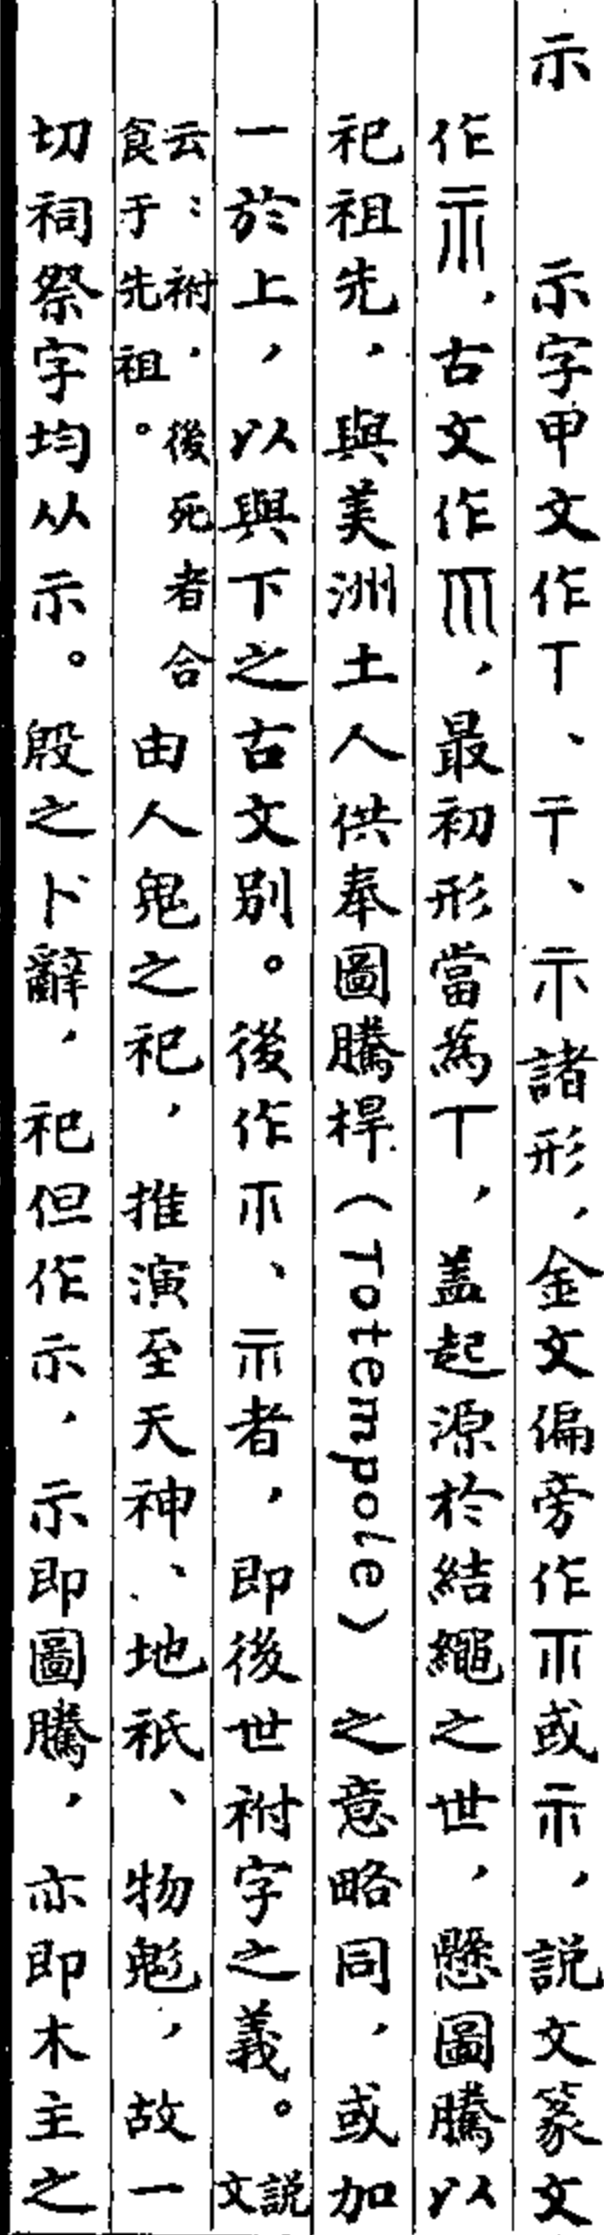 示　示字甲文作丅、〒、示諸形，金文偏旁作或示，說文篆文
作示，古文作，最初形當為丅，蓋起源於結繩之世，懸圖騰以
祀祖先，與美洲土人供奉圖騰桿（Totempole）之意略同，或加
一於上，以與下之古文別。後作、示者，即後世祔字之義。說文
云：祔，後死者合食于先祖。由人鬼之祀，推演至天神、地祇、物鬽，故一
切祠祭字均从示。殷之卜辭，祀但作示，示即圖騰，亦即木主之